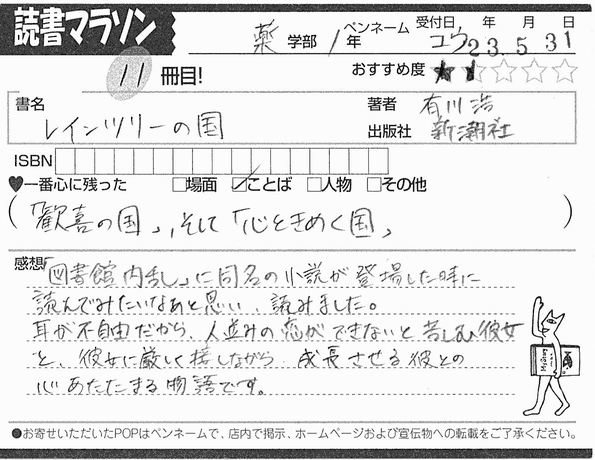 読書マラソン
薬 学部 1年 ペンネーム ユウ 受付日 23年 5月 31日
11 冊目! おすすめ度 ★★☆☆☆
書名 レインツリーの国
著者 有川浩
出版社 新潮社
ISBN
♥一番心に残った □場面 ☑ことば □人物 □その他
(「歓喜の国」,そして「心ときめく国」)
感想「図書館内乱」に同名の小説が登場した時に
読んでみたいなあと思い、読みました。
耳が不自由だから、人並みの恋ができないと苦しむ彼女
と、彼女に厳しく接しながら、成長させる彼との
心あたたまる物語です。
Mystery
●お寄せいただいたPOPはペンネームで、店内で掲示、ホームページおよび宣伝物への転載をご了承ください。